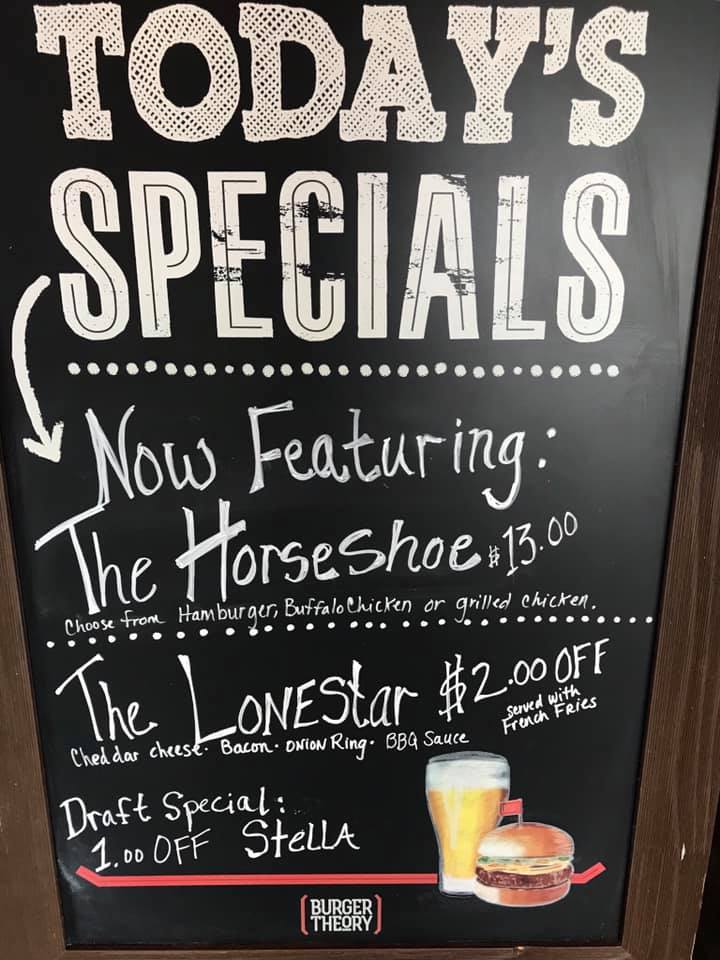 TODAY'S
SPECIALS
Now Featuring:
The HorseShoe $13.00
Choose from Hamburger, Buffalo Chicken or grilled chicken.
The LONEStar $2.00 OFF
served with
French Fries
Cheddar cheese · Bacon · ONION Ring · BBQ Sauce
Draft Special:
1.00 OFF StELLA
BURGER
THEORY